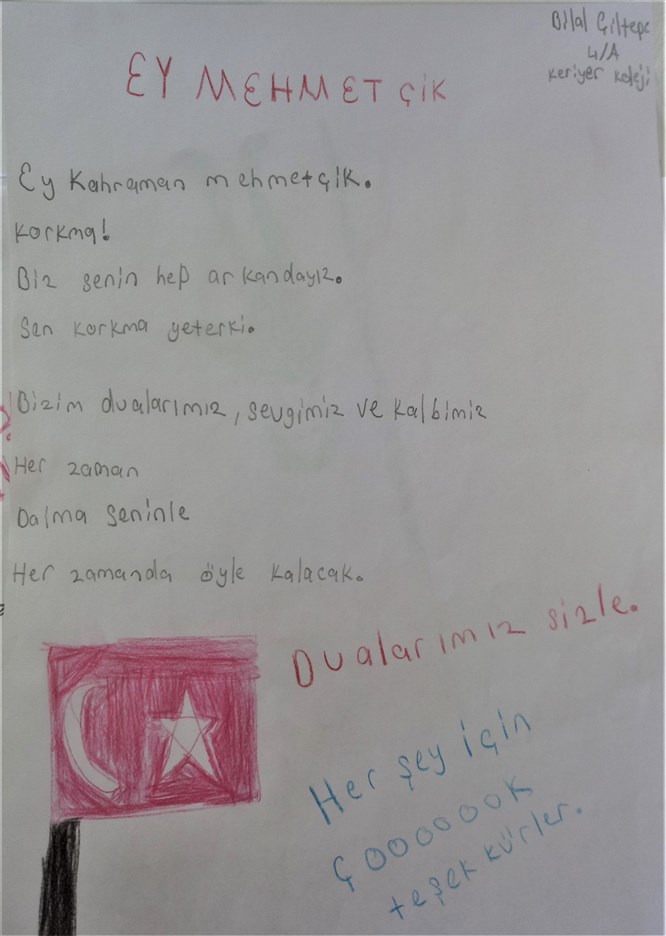 Bilal Çiltepe
4/A
Kariyer Koleji
EY MEHMETÇİK
Ey Kahraman mehmetçik.
Korkma!
Biz senin hep arkandayız.
Sen korkma yeterki.
Bizim dualarımız, sevgimiz ve kalbimiz
Her zaman
Dalma seninle
Her zamanda öyle kalacak.
Dualarımız sizle.
Her şey için
ÇOOOOOOK
teşekkürler.